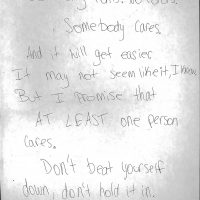 Somebody cares.
And it will get easier
It may not seem like it, I know
But I promise that
AT LEAST one person
cares.
Don't beat yourself
down, don't hold it in.